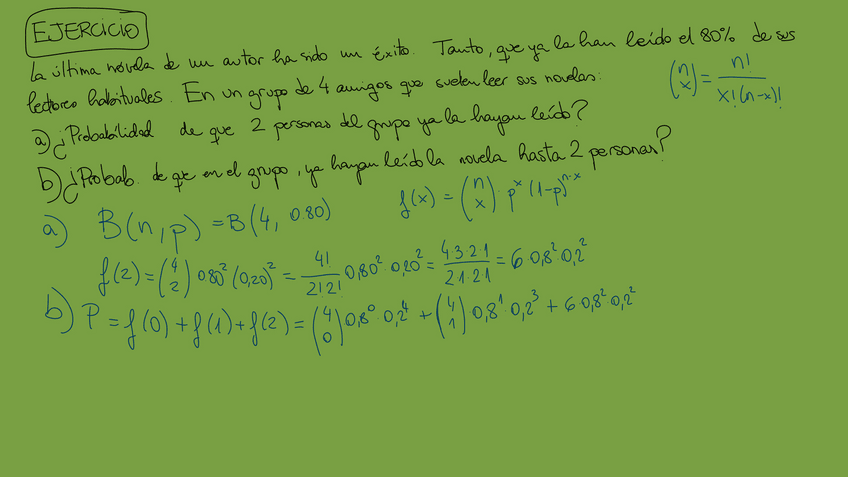 EJERCICIO
La última novela de un autor ha sido un éxito. Tanto, que ya la han leído el 80% de sus
lectores habituales. En un grupo de 4 amigos que suelen leer sus novelas:
(n x) = n! / x!(n-x)!
a) ¿Probabilidad de que 2 personas del grupo ya la hayan leído?
b) ¿Probab. de que en el grupo, ya hayan leído la novela hasta 2 personas?
a) B(n,p) = B(4, 0.80) f(x) = (n x) · p^x (1-p)^n-x
f(2) = (4 2) 0.80² (0,20)² = 4! / 2!2! 0,80² · 0,20² = 4·3·2·1 / 2·1·2·1 = 6·0,8²·0,2²
b) P = f(0) + f(1) + f(2) = (4 0) 0,8⁰ · 0,2⁴ + (4 1) · 0,8¹ · 0,2³ + 6·0,8²·0,2²